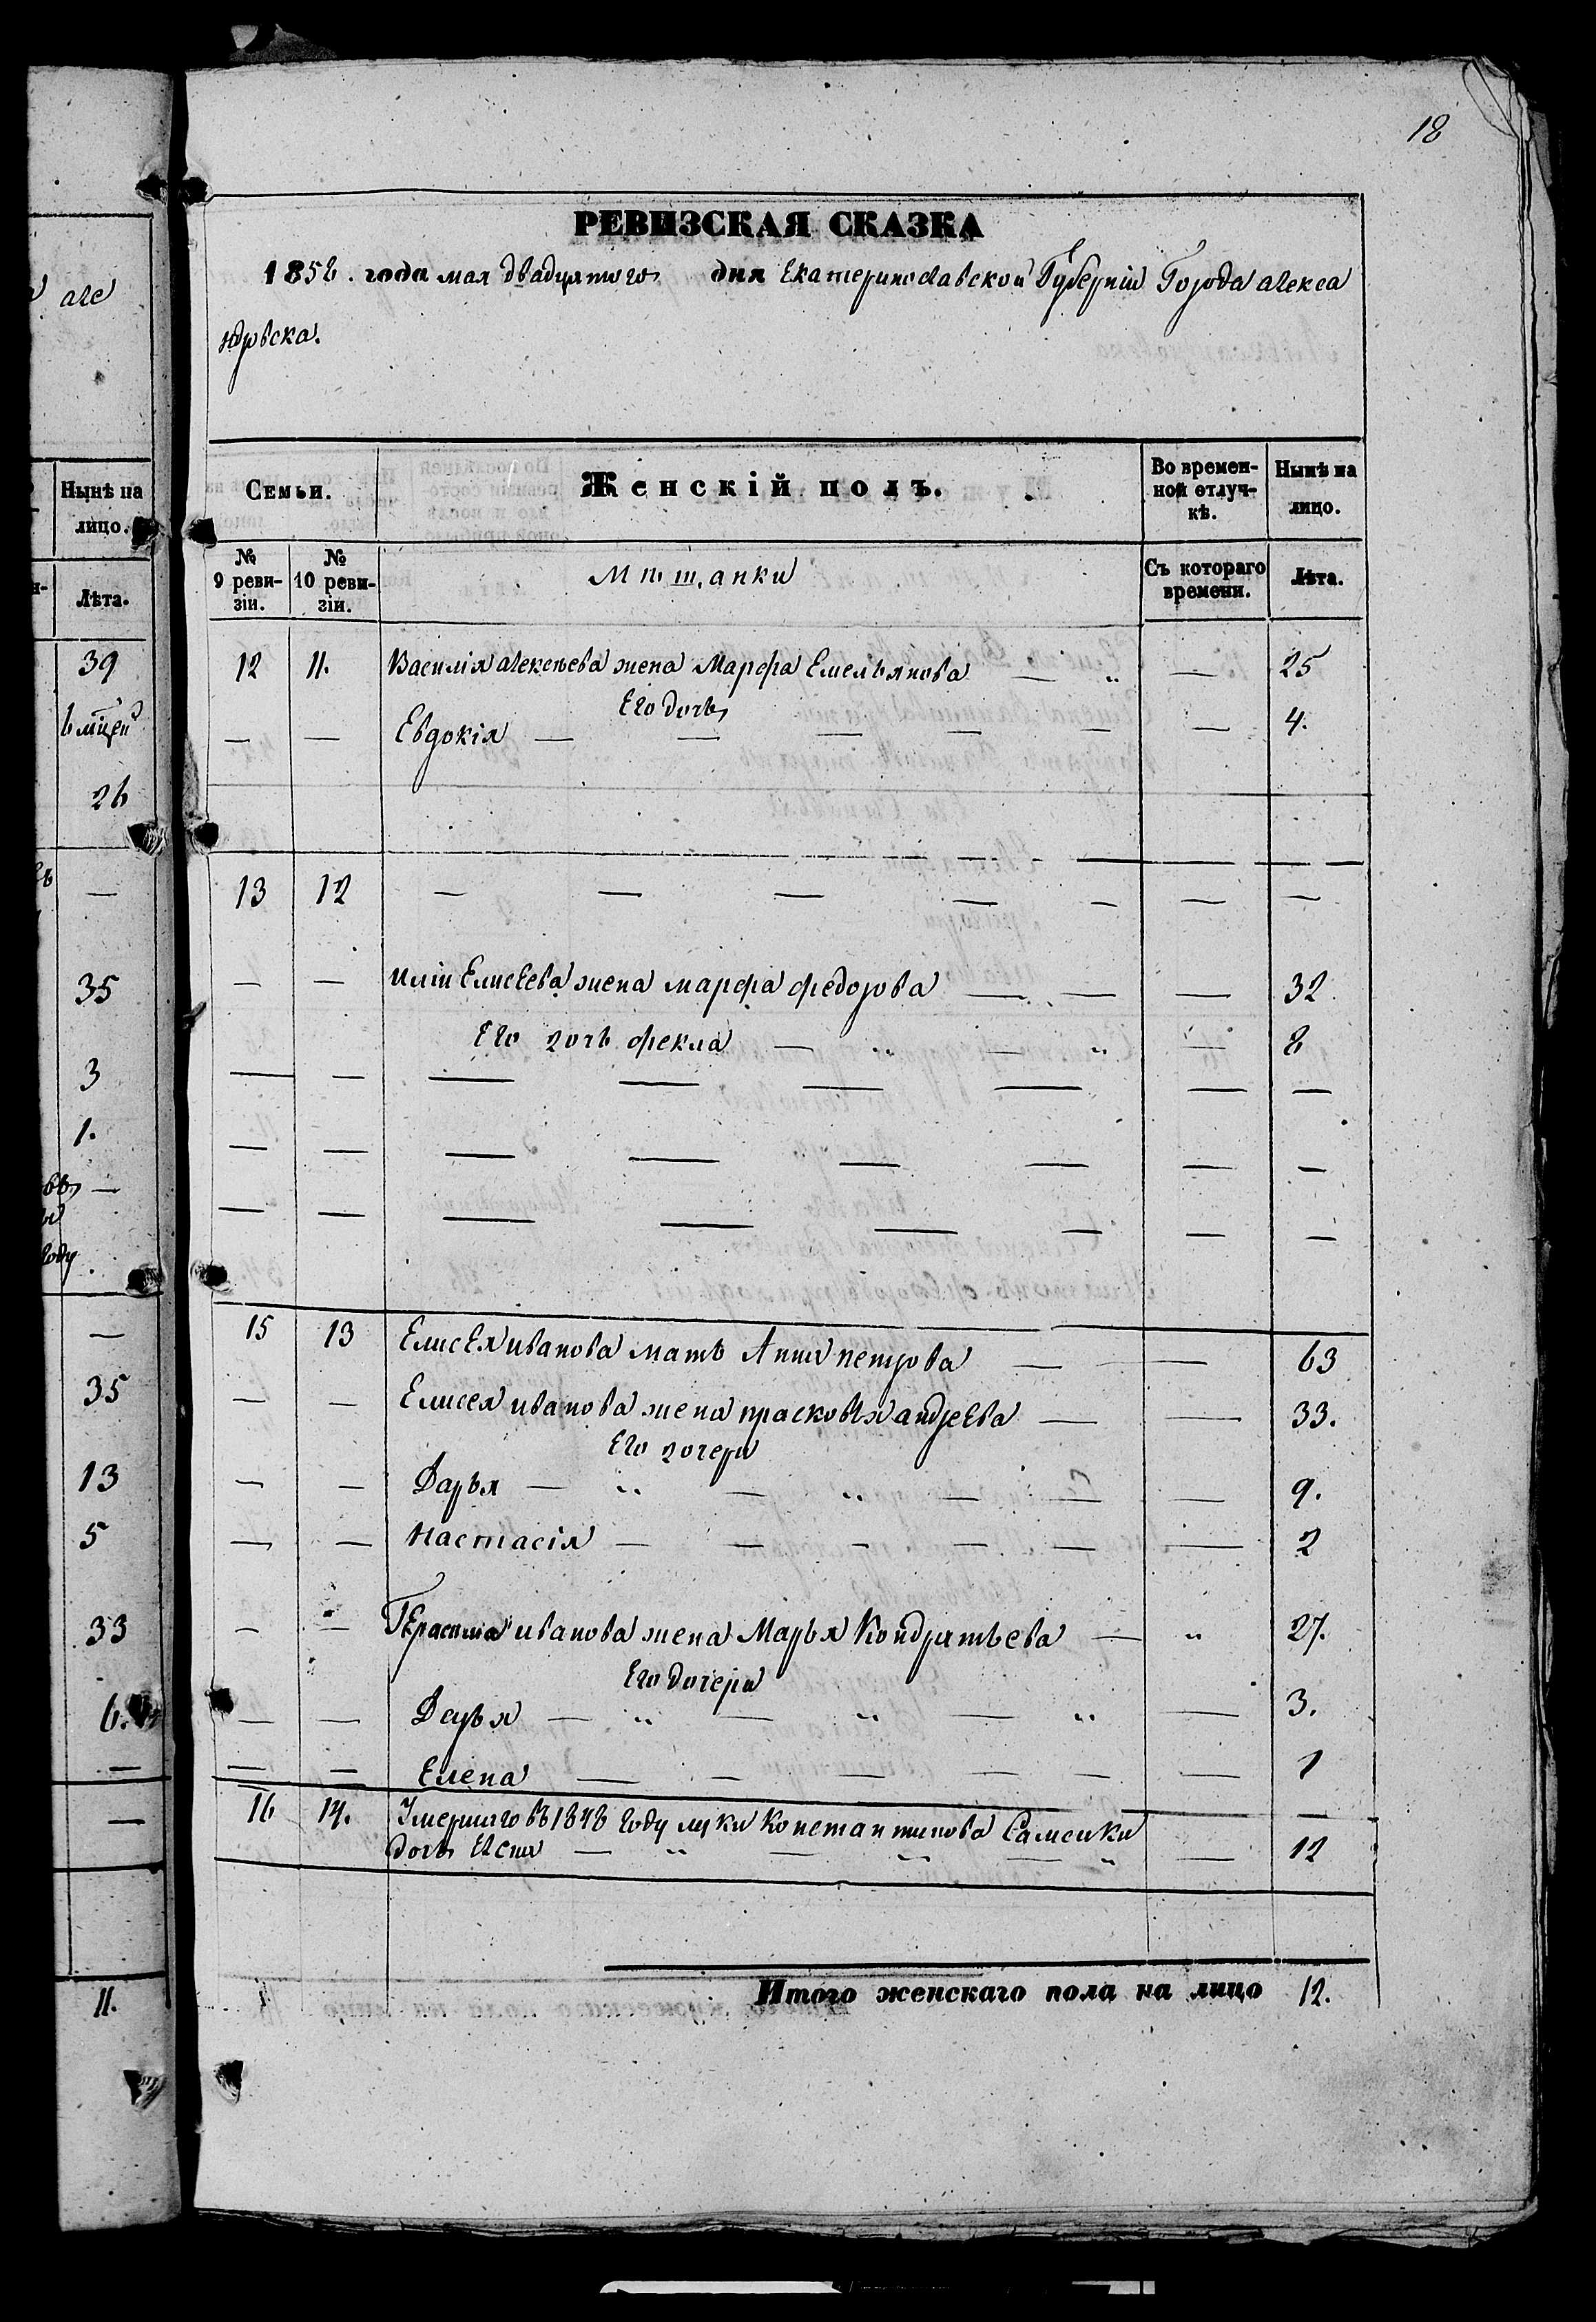 18
РЕВИЗСКАЯ СКАЗКА
1858. года мая двадцятого дня Екатеринославской Губерніи Города алекса
ндровска.
Семьи.
Женскій полъ.
Во времен-
ной отлуч-
кѣ.
Нынѣ на
лицо.
№
9 реви-
зіи.
№
10 реви-
зіи.
Мѣщанки
Съ котораго
времени.
Лѣта.
12 11. Василія алексѣева жена Марфа Емельянова — „ — 25
Его дочь
— — Евдокія — — — — — — 4.
13 12 — — — — — — —
— — иліи Елисеева жена марфа федорова — — — 32
Его дочь фекла — „ — „ — 8
— — — — — — — —
— — — — — — — —
— — — — — — — —
15 13 Елисея иванова мать Анна петрова — — 63
— — Елисея иванова жена прасковья андреева — — 33.
Его дочери
— — Дарья — „ — „ — — — 9.
— — Настасія — — — — — — 2
— — Герасима иванова жена Марья Кондратьева — „ 27.
Его дочери
— — Дарья — „ — „ — „ — 3.
— — Елена — — — — — — 1
16 14. Умершаго въ 1848 году луки Константинова
дочь — „ — „ — „ — 12
Итого женскаго пола на лицо 12.
але
Нынѣ на
лицо.
Лѣта.
39
26
—
35
3
1.
—
году
—
35
13
5
33
6.
—
—
11.